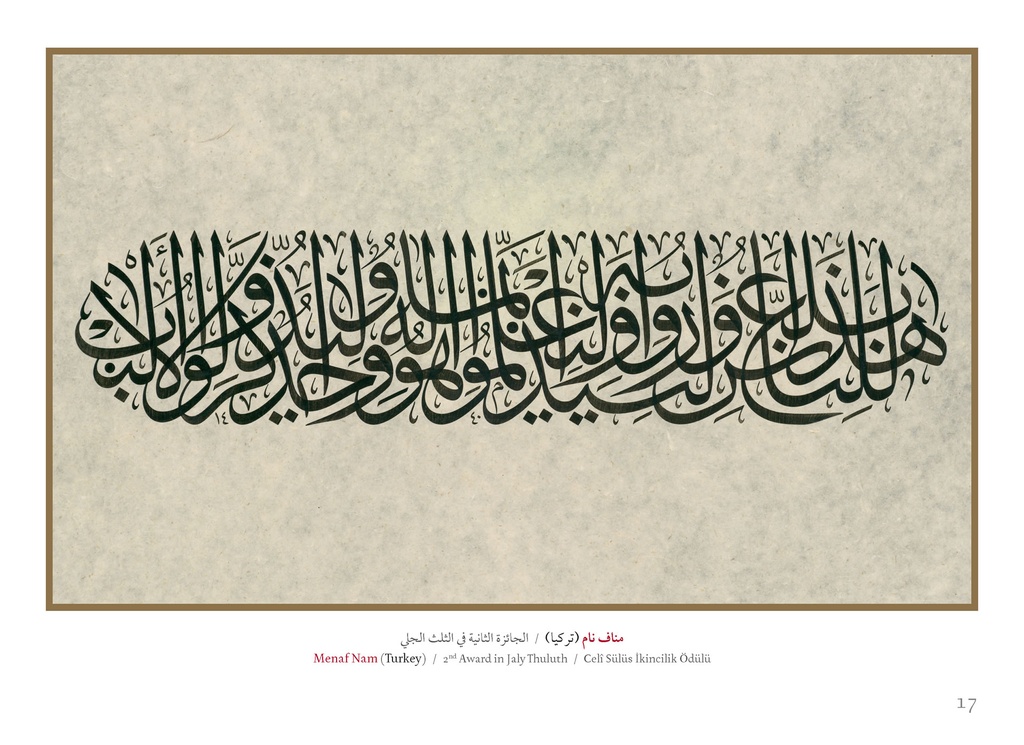 هذا بلاغ للناس ولينذروا به وليعلموا أنما هو إله واحد وليذكر أولو الألباب
مناف نام (تركيا) / الجائزة الثانية في الثلث الجلي
Menaf Nam (Turkey) / 2nd Award in Jaly Thuluth / Celî Sülüs İkincilik Ödülü
17